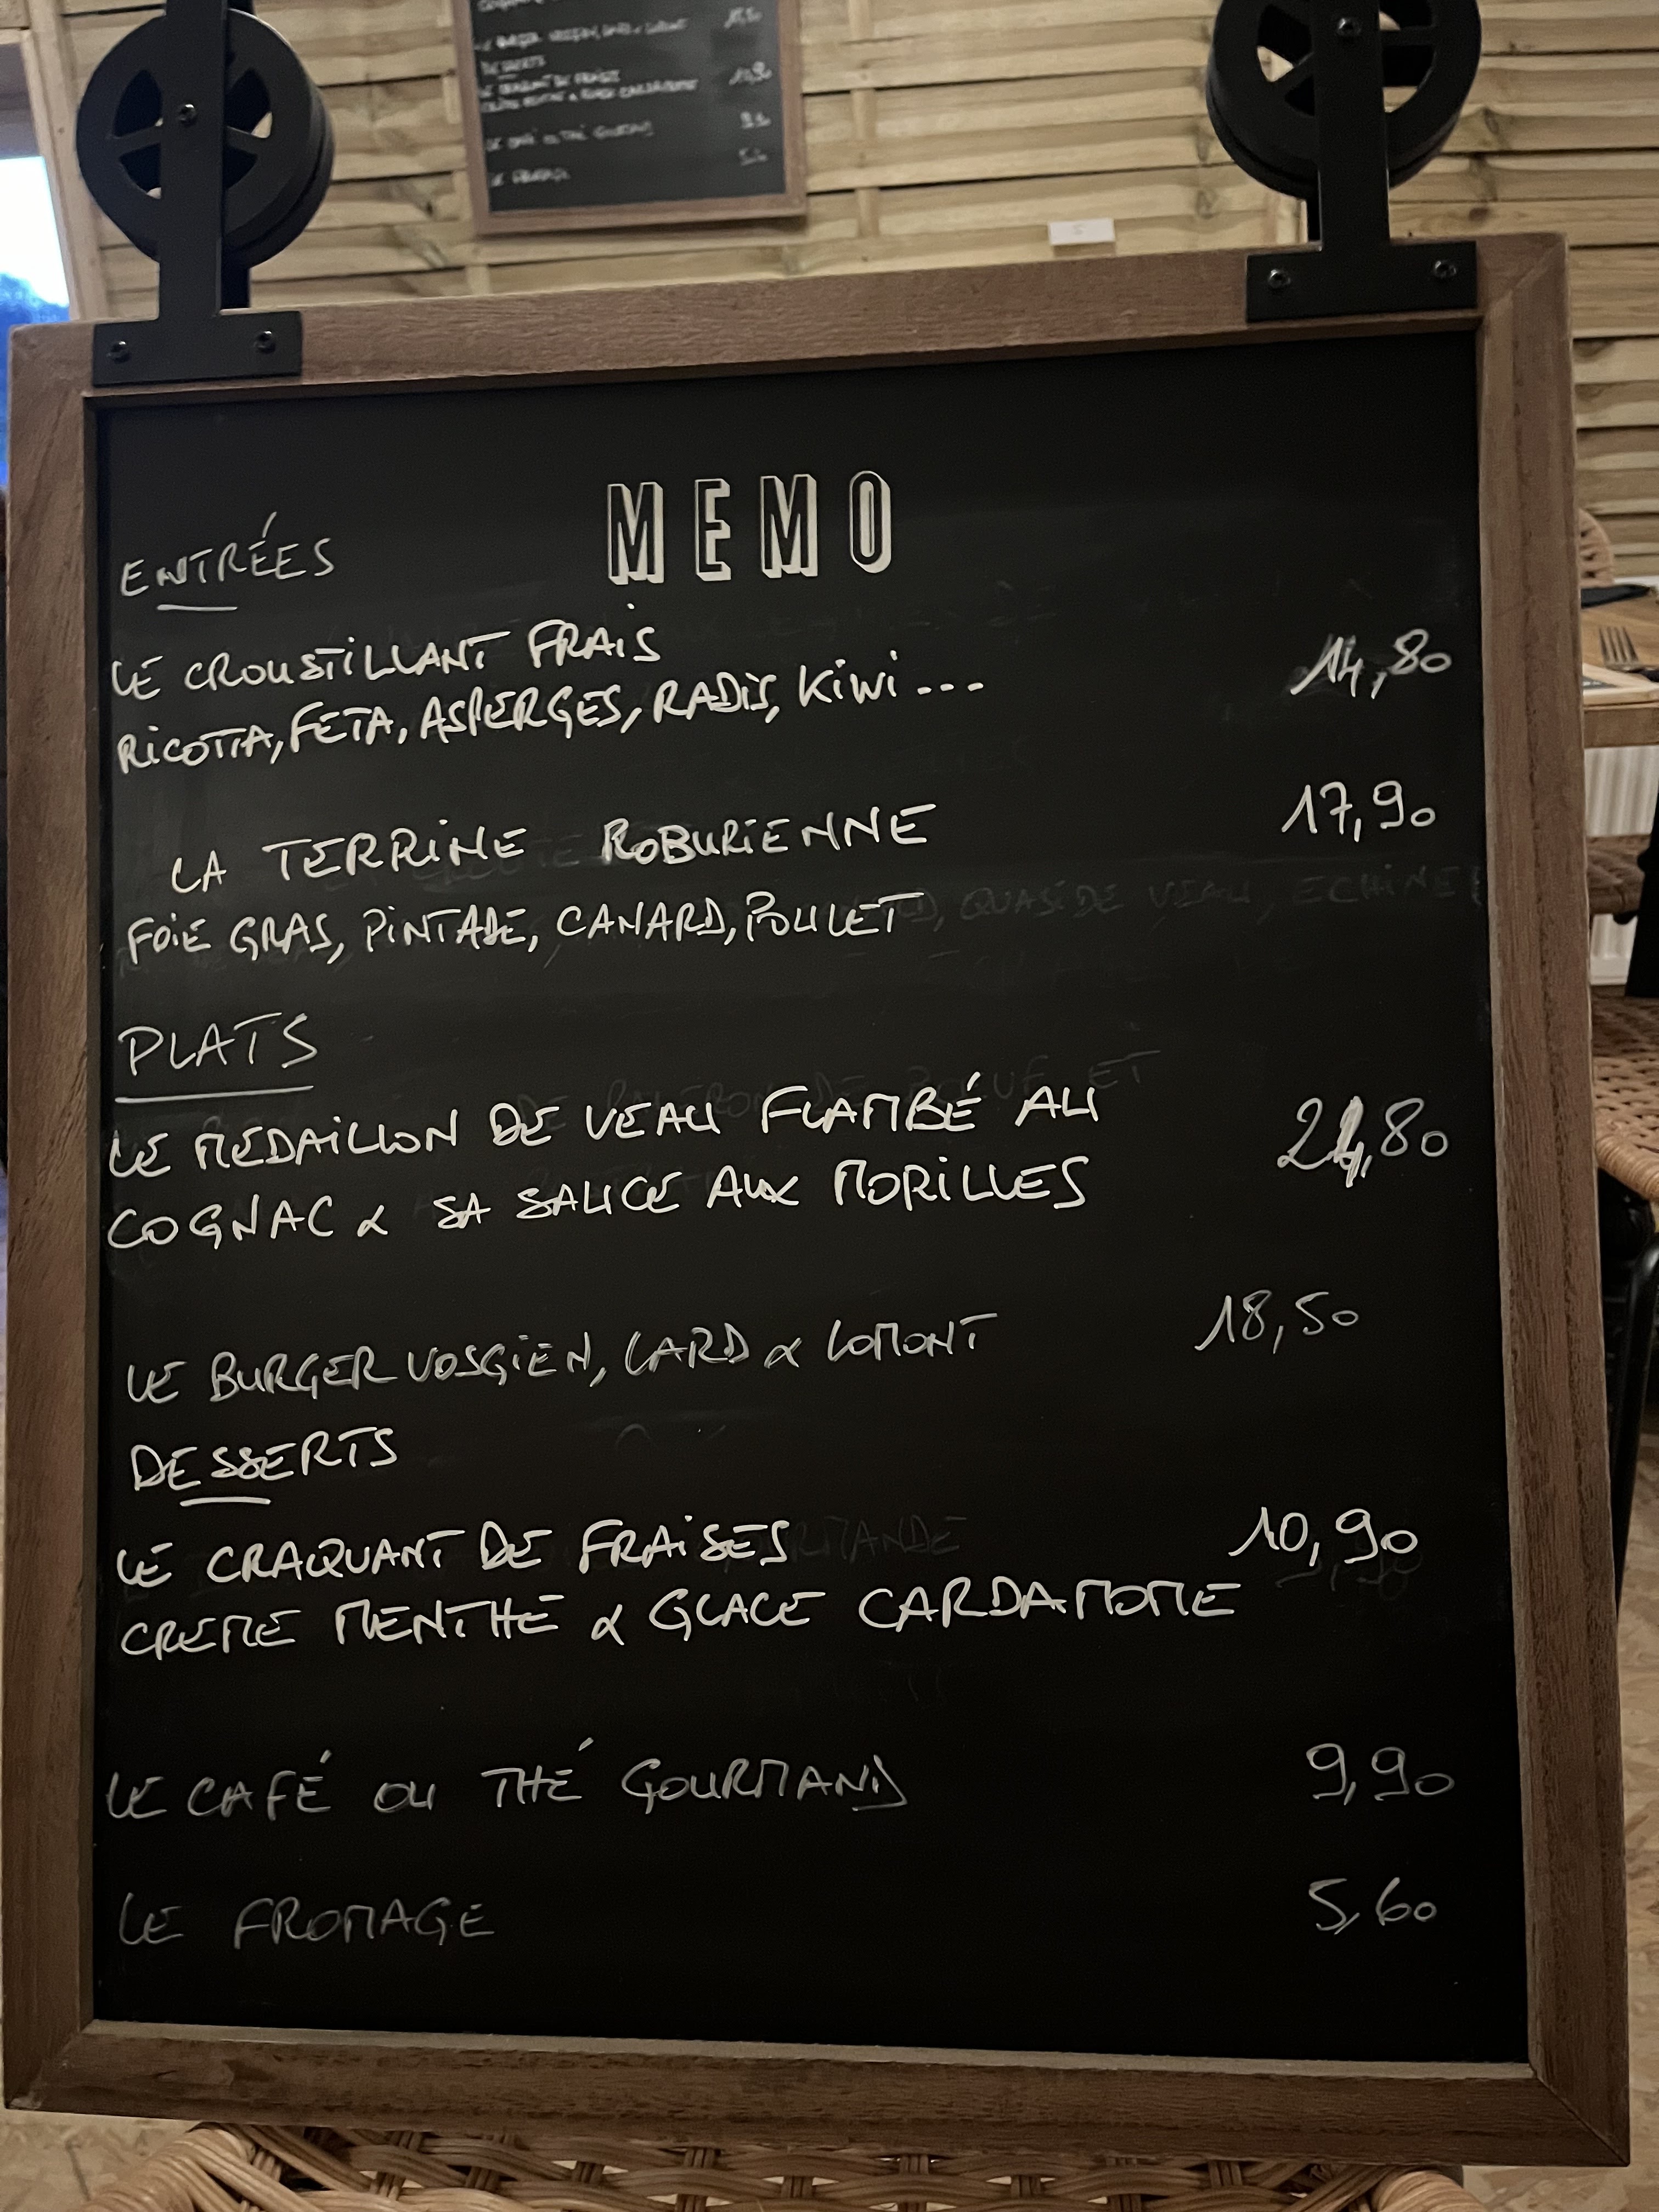 MEMO
ENTRÉES
LE CROUSTILLANT FRAIS
RICOTTA, FETA, ASPERGES, RADIS, KIWI... 14,80
LA TERRINE ROBURIENNE 17,90
FOIE GRAS, PINTADE, CANARD, POULET
PLATS
LE MEDAILLON DE VEAU FLAMBÉ AU
COGNAC & SA SAUCE AUX MORILLES
LE BURGER VOSGIEN, LARD & LOMONT 18,50
DESSERTS
LE CRAQUANT DE FRAISES 10,90
CREME MENTHE & GLACE CARDAMOME
LE CAFÉ OU THÉ GOURMAND 9,90
LE FROMAGE 5,60